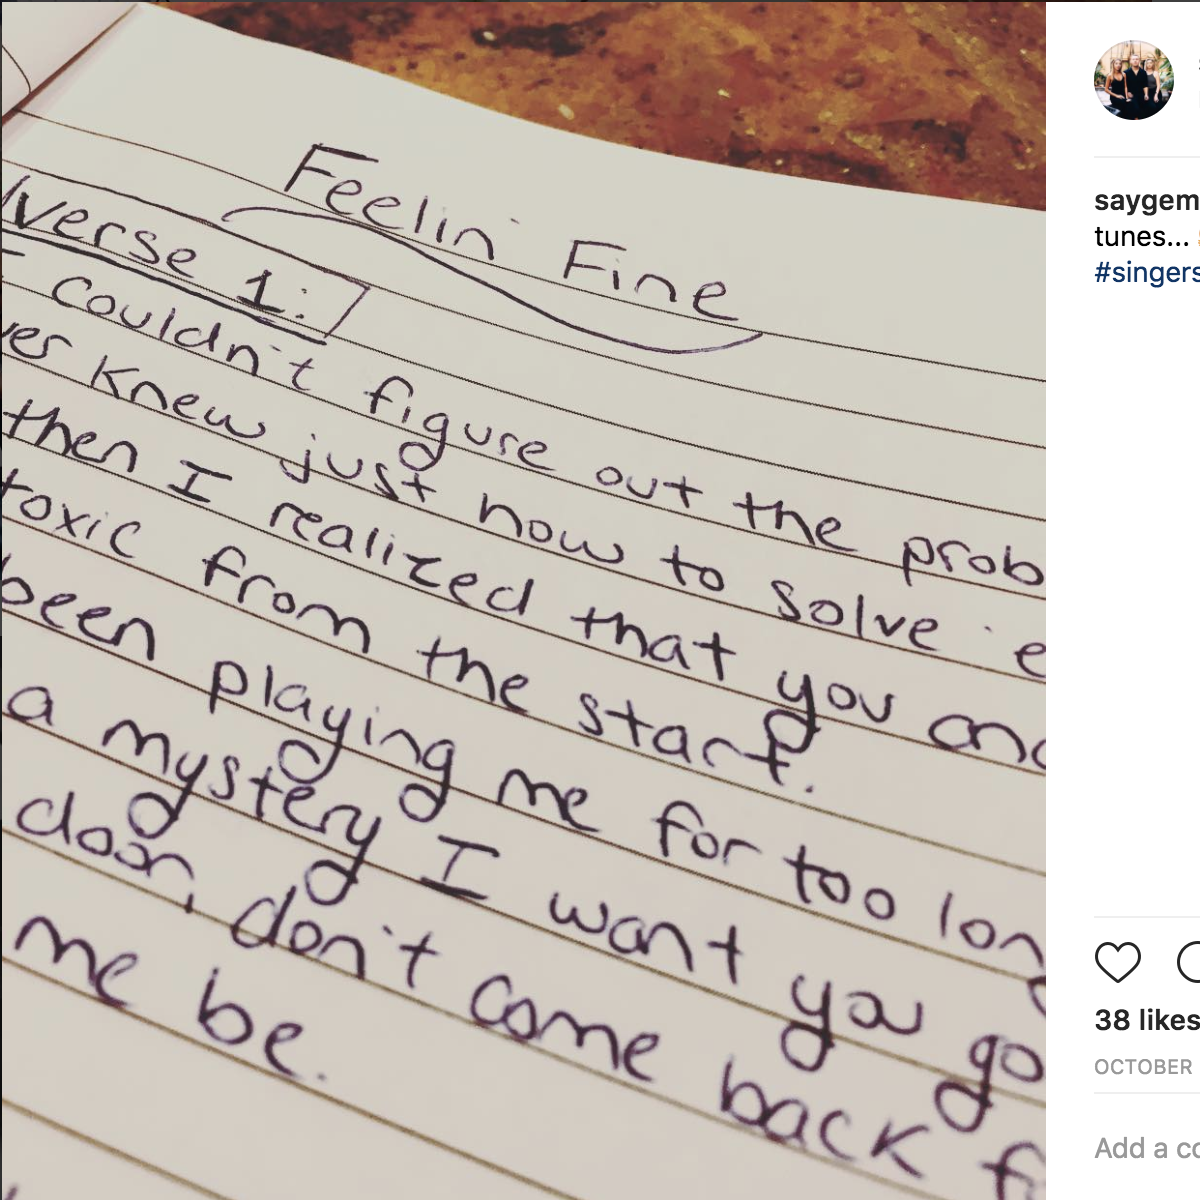 Feelin' Fine
verse 1:
I couldn't figure out the prob
ver knew just how to solve 'e
then I realized that you and
toxic from the start.
been playing me for too lon
a mystery I want you go
door, don't come back f
me be.
saygem
tunes...
#singers
38 likes
OCTOBER
Add a co